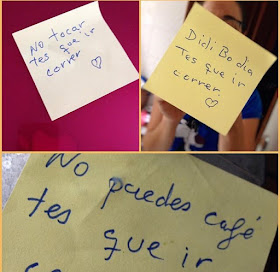 No tocar
tes que ir
correr
Didi Bo dia
Tes que ir
correr.
No puedes café
tes que ir